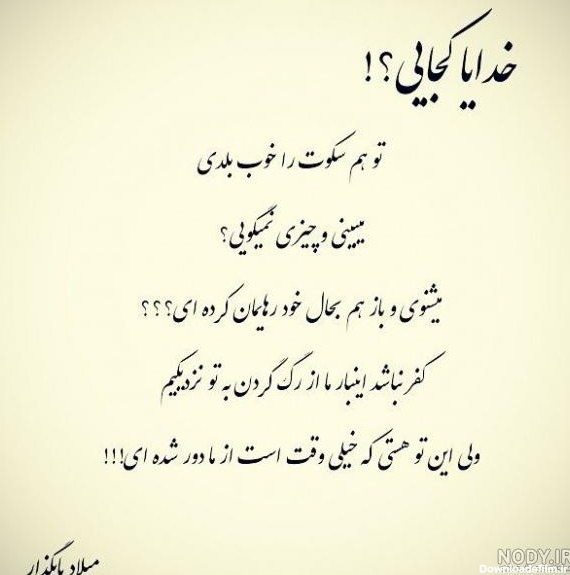 خدایا کجایی؟!
تو هم سکوت را خوب بلدی
میبینی و چیزی نمیگویی؟
میشنوی و باز هم بحال خود رهایمان کرده ای؟؟؟
کفر نباشد اینبار ما از رگ گردن به تو نزدیکیم
ولی این تو هستی که خیلی وقت است از ما دور شده ای!!!
میلاد پایگذار
NODY.IR
Downloadefilm.ir